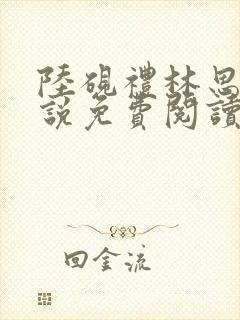 陸硯禮林恩
說免費閱讀
回金流